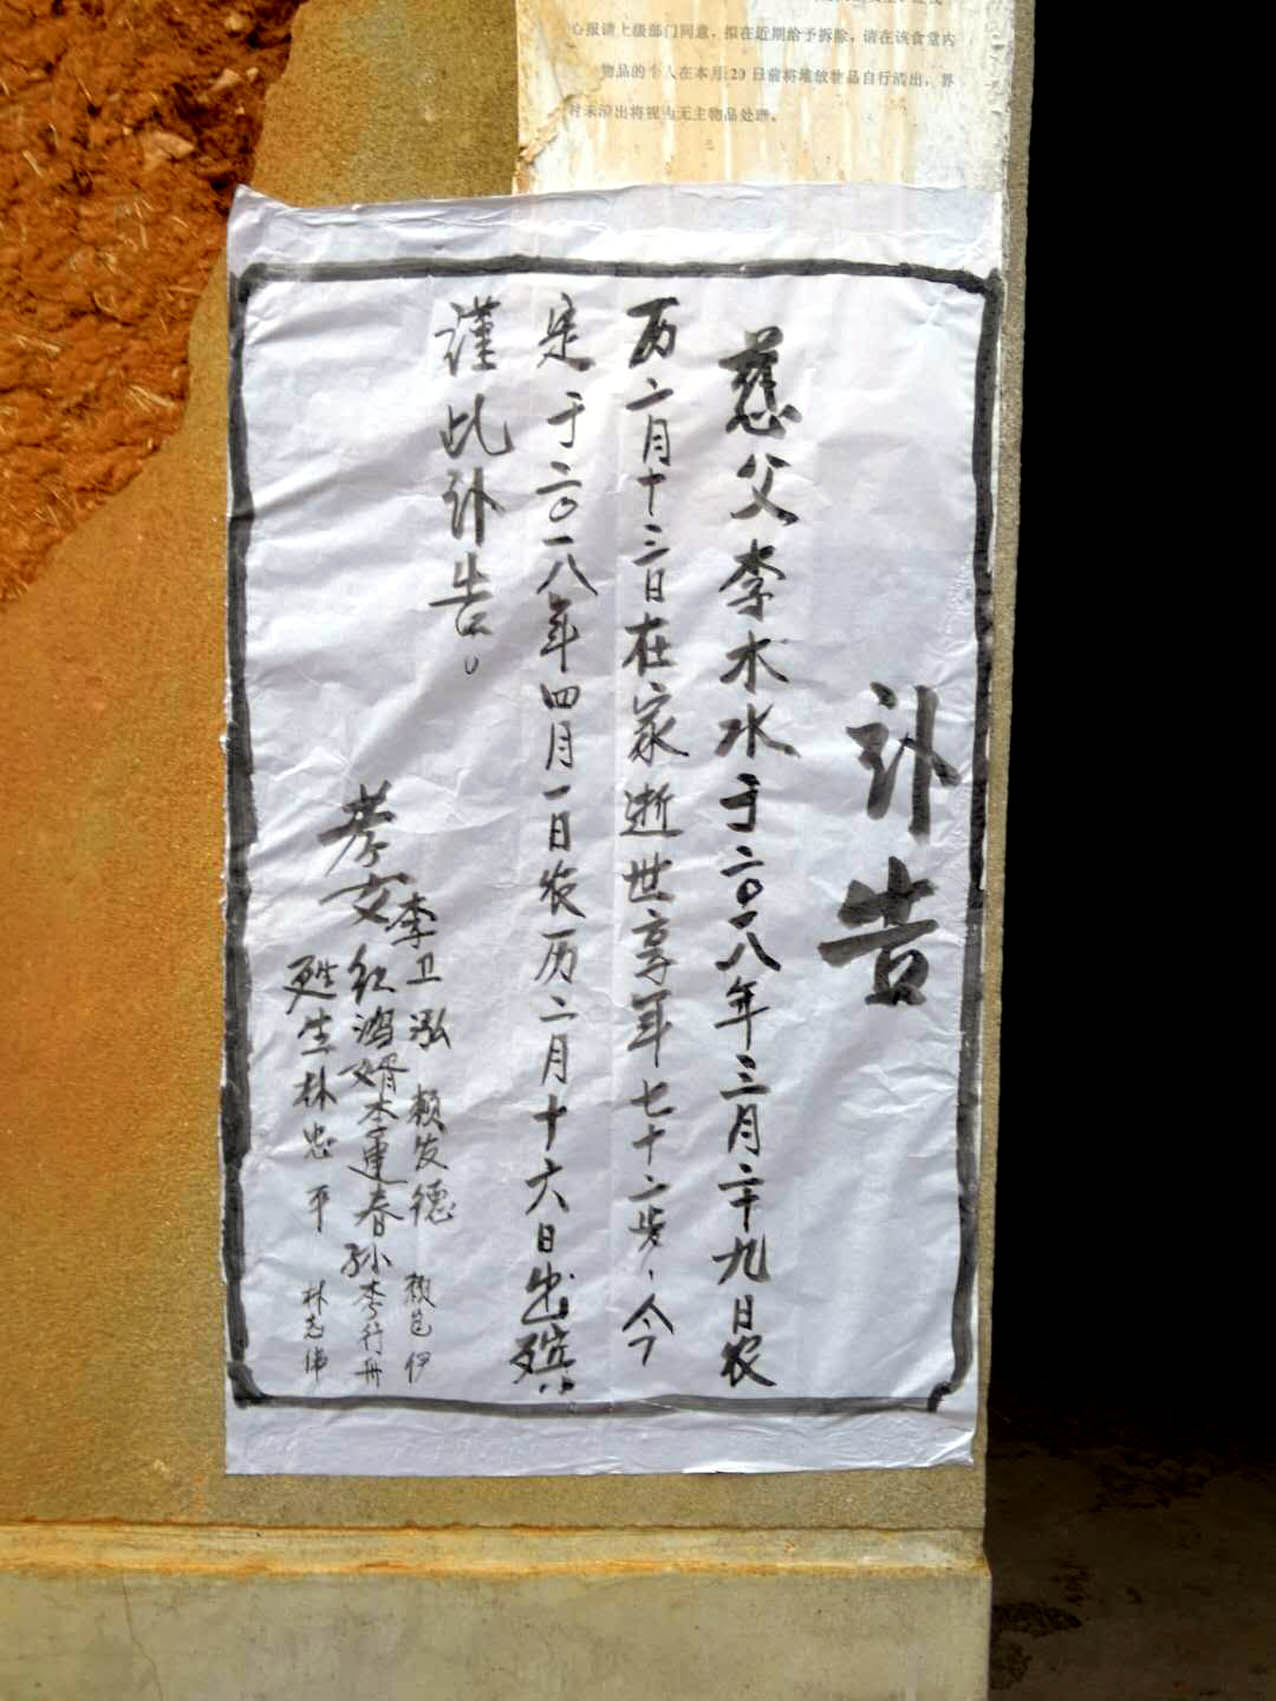 心报请上级部门同意，拟在近期给予拆除，请在该食堂内
物品的个人在本月20日前将堆放物品自行清出，界
时未清出将视为无主物品处理。
讣告
慈父李木水于二〇一八年三月二十九日农
历二月十三日在家逝世享年七十二岁，今
定于二〇一八年四月一日农历二月十六日出殡。
谨此讣告。
孝女
李卫泓 赖发德 赖 伊
红鸿婿李運春孙李行舟
甥生林忠平 林志伟